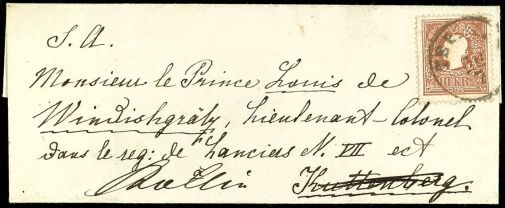 S. A.
Monsieur le Prince Louis de
Windishgrätz, Lieutenant-Colonel
dans le reg: de Lanciers N. VII ect
Kollin Kuttenberg.
10 KR